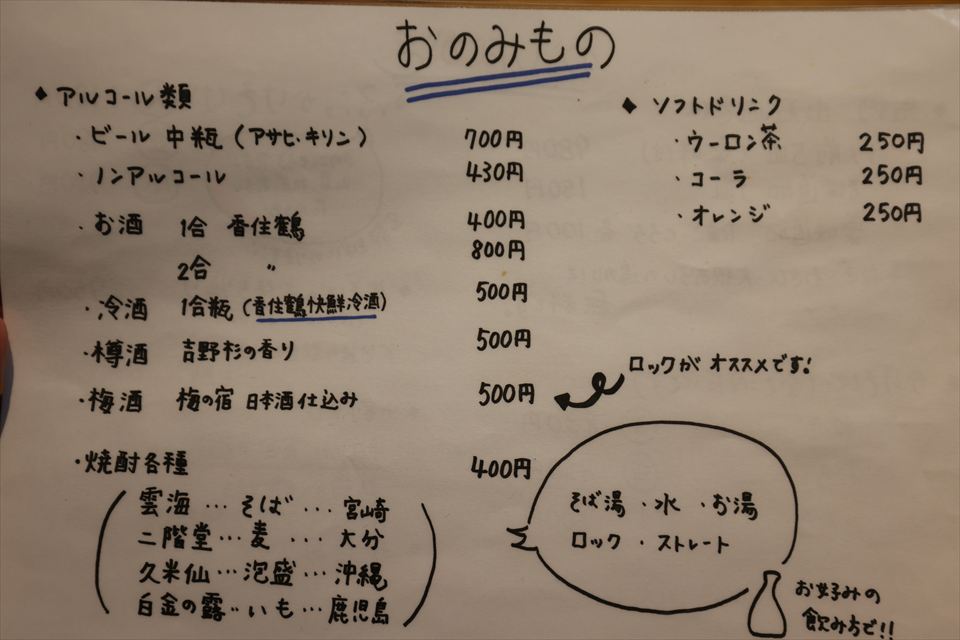 おのみもの
◆アルコール類
・ビール 中瓶 (アサヒ・キリン) 700円
・ノンアルコール 430円
・お酒 1合 香住鶴 400円
2合 〃 800円
・冷酒 1合瓶 (香住鶴快鮮冷酒) 500円
・樽酒 吉野杉の香り 500円
・梅酒 梅の宿 日本酒仕込み 500円
ロックが オススメです!
・焼酎各種 400円
雲海…そば…宮崎
二階堂…麦…大分
久米仙…泡盛…沖縄
白金の露…いも…鹿児島
そば湯・水・お湯
ロック・ストレート
お好みの
飲み方で!!
◆ソフトドリンク
・ウーロン茶 250円
・コーラ 250円
・オレンジ 250円